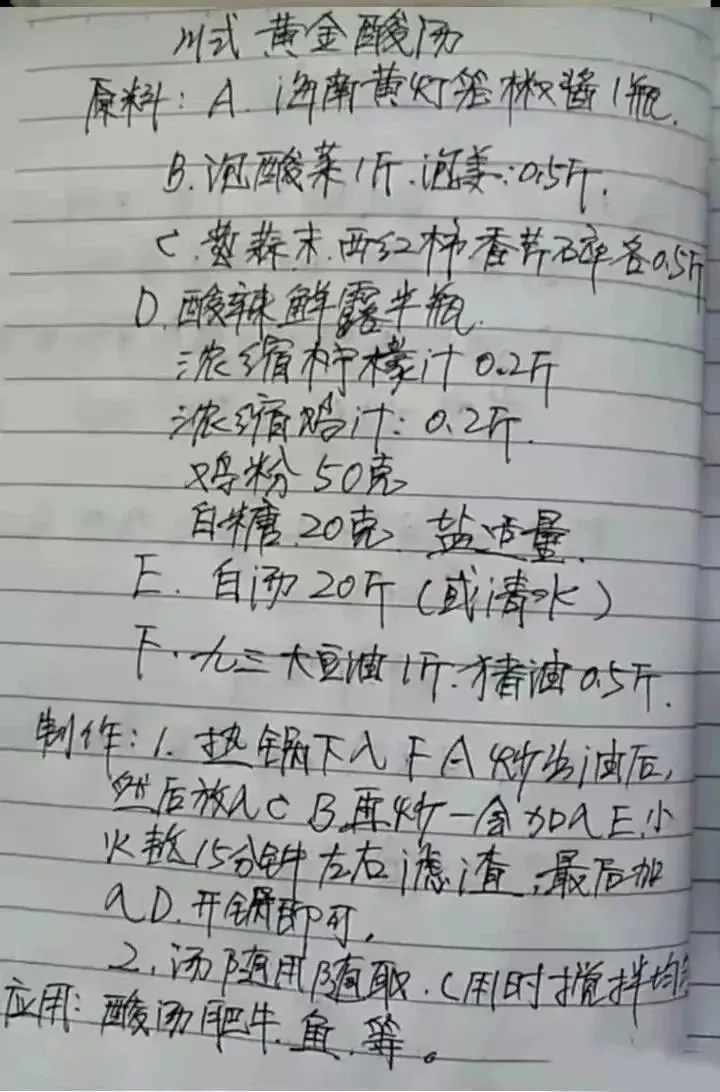 川式黄金酸汤
原料: A. 海南黄灯笼椒酱1瓶.
B. 泡酸菜1斤. 泡姜: 0.5斤.
C. 蒜末. 西红柿香芹碎各0.5斤
D. 酸辣鲜露半瓶.
浓缩柠檬汁0.2斤
浓缩鸡汁: 0.2斤.
鸡粉50克
白糖20克. 盐适量.
E. 白汤20斤(或清水)
F. 九三大豆油1斤. 猪油0.5斤.
制作: 1. 热锅下入F A炒出油后,
然后放入C B再炒一会加入E.小
火熬15分钟左右滤渣,最后加
入D. 开锅即可.
2. 汤随用随取.(用时搅拌均
应用: 酸汤肥牛.鱼.等。